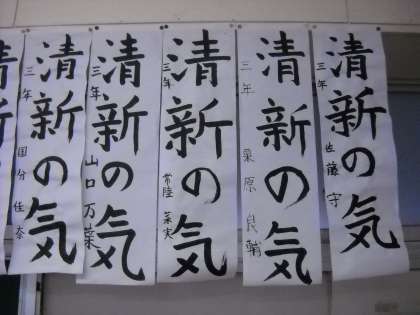 清新の気
三年 佐藤守
清新の気
三年 栗原良輔
清新の気
三年 常陸菜実
清新の気
三年 山口万葉
清新の気
三年 国分佳奈